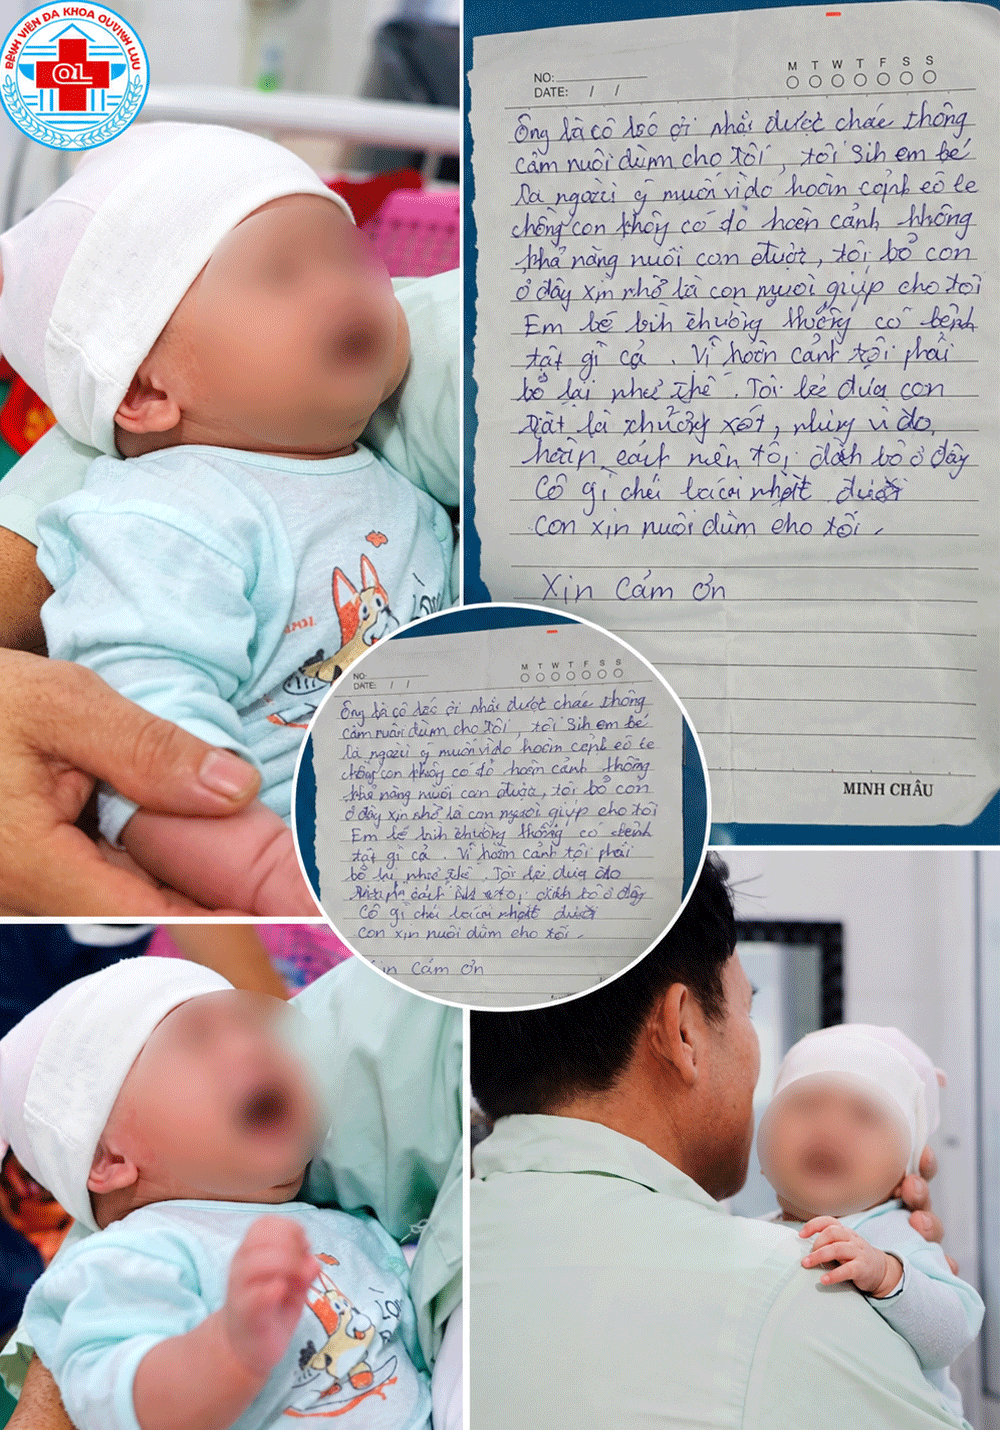 BỆNH VIỆN ĐA KHOA QUỲNH LƯU
QL
M T W T F S S
NO:
DATE: / /
Ông bà cô bác ơi nhận được cháu thông
cảm nuôi dùm cho tôi, tôi sih em bé
la người ý muốn vì do hoàn cảnh
chồng con không có đò hoàn cảnh không
khả nàng nuôi con được, tôi bỏ con
ở đây xin nhờ là con người giúp cho tôi
Em bé bình thường không có bệnh
tật gì cả. Vì hoàn cảnh tôi phải
bỏ lại như thế. Tôi đứa con
rất là thương xót, nhưng vì do
hoàn cách nên tôi đành bỏ ở đây
Cô gì chú bác nhặt được
con xin nuôi dùm cho tôi.
Xin Cám Ơn
MINH CHÂU
NO:
DATE: / /
M T W T F S S
Ông bà cô bác ơi nhận được cháu thông
cảm nuôi dùm cho tôi, tôi sih em bé
la người ý muốn vì do hoàn cảnh
chồng con không có đò hoàn cảnh không
khả nàng nuôi con được, tôi bỏ con
ở đây xin nhờ là con người giúp cho tôi
Em bé bình thường không có bệnh
tật gì cả. Vì hoàn cảnh tôi phải
bỏ lại như thế. Tôi đứa
đành bỏ ở đây
Cô gì chú bác nhặt được
con xin nuôi dùm cho tôi.
Cám Ơn